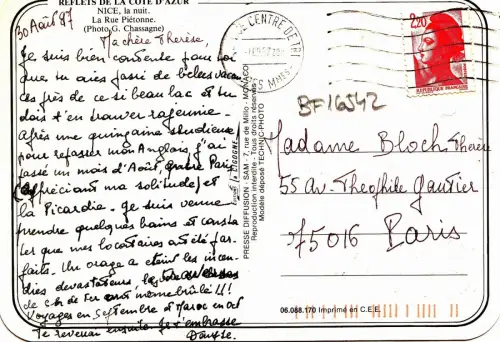 REFLETS DE LA COTE D'AZUR
NICE, la nuit.
La Rue Piétonne.
(Photo G. Chassagne)
30 Août 87
Ma chère Thérèse,
Je suis bien contente pour toi
que tu aies passé de belles vacan
ces près de ce si beau lac et tu
dois t'en trouver rajeunie.
Après une quinzaine studieuse
pour repasser mon Anglais j'ai
passé un mois d'Août, entre Paris
(appréciant ma solitude) et
la Picardie. Je suis venue
prendre quelques bains et consta
ter que mes locataires ont été par
faits. Un orage a éteint les incen
dies dévastateurs,
de ch. de Fer ont même brûlé !!!
Voyages en Septembre et Maroc en Oct
Te reverrai ensuite. Je t'embrasse
PRESSE DIFFUSION - SAM - 7, rue de Millo - MONACO
Reproduction interdite - Tous droits réservés
Modèle déposé TECHNIC-PHOTO
CENTRE DE TRI
ALPES MMES
2,20
REPUBLIQUE FRANÇAISE
BF16542
Madame Bloch Thérèse
55 Av. Théophile Gautier
75016 Paris
06.088.170 Imprimé en C.E.E.